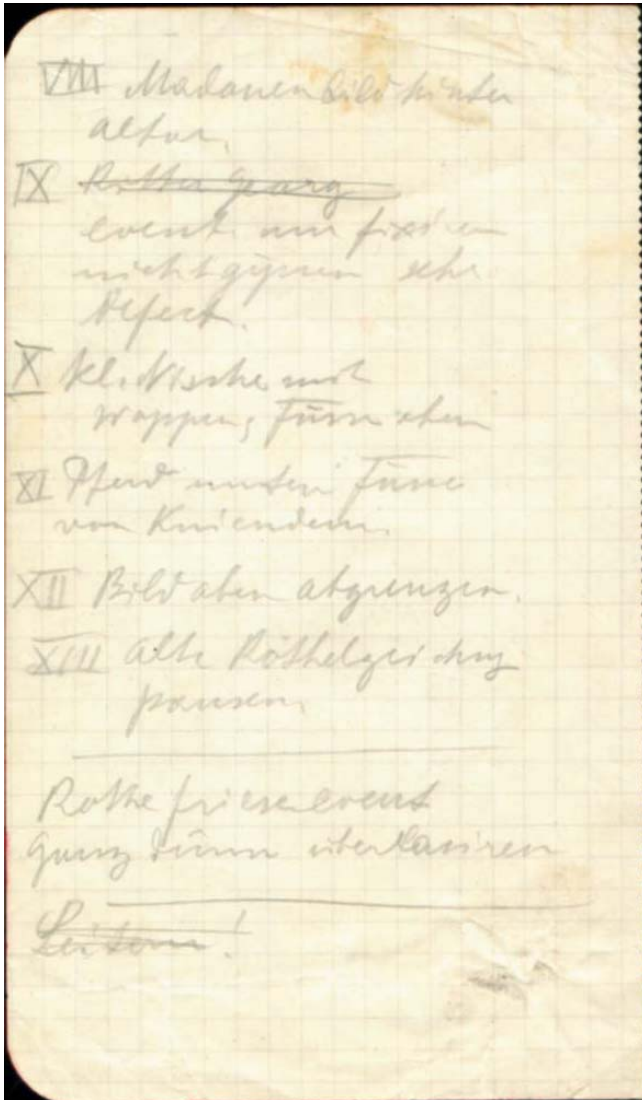 VIII Madonnenbild hinter
Altar.
IX Ritter Georg
event. nur fixiren
nicht gipsen sehr
defect.
X kl. Nische mit
Wappen, Türe oben
XI Pferd unten
von Knieendem.
XII Bild oben abgrenzen.
XIII Alte Röthelzeichng
pausen.
Rothe friese event
ganz dünn überlasiren
Leitern!